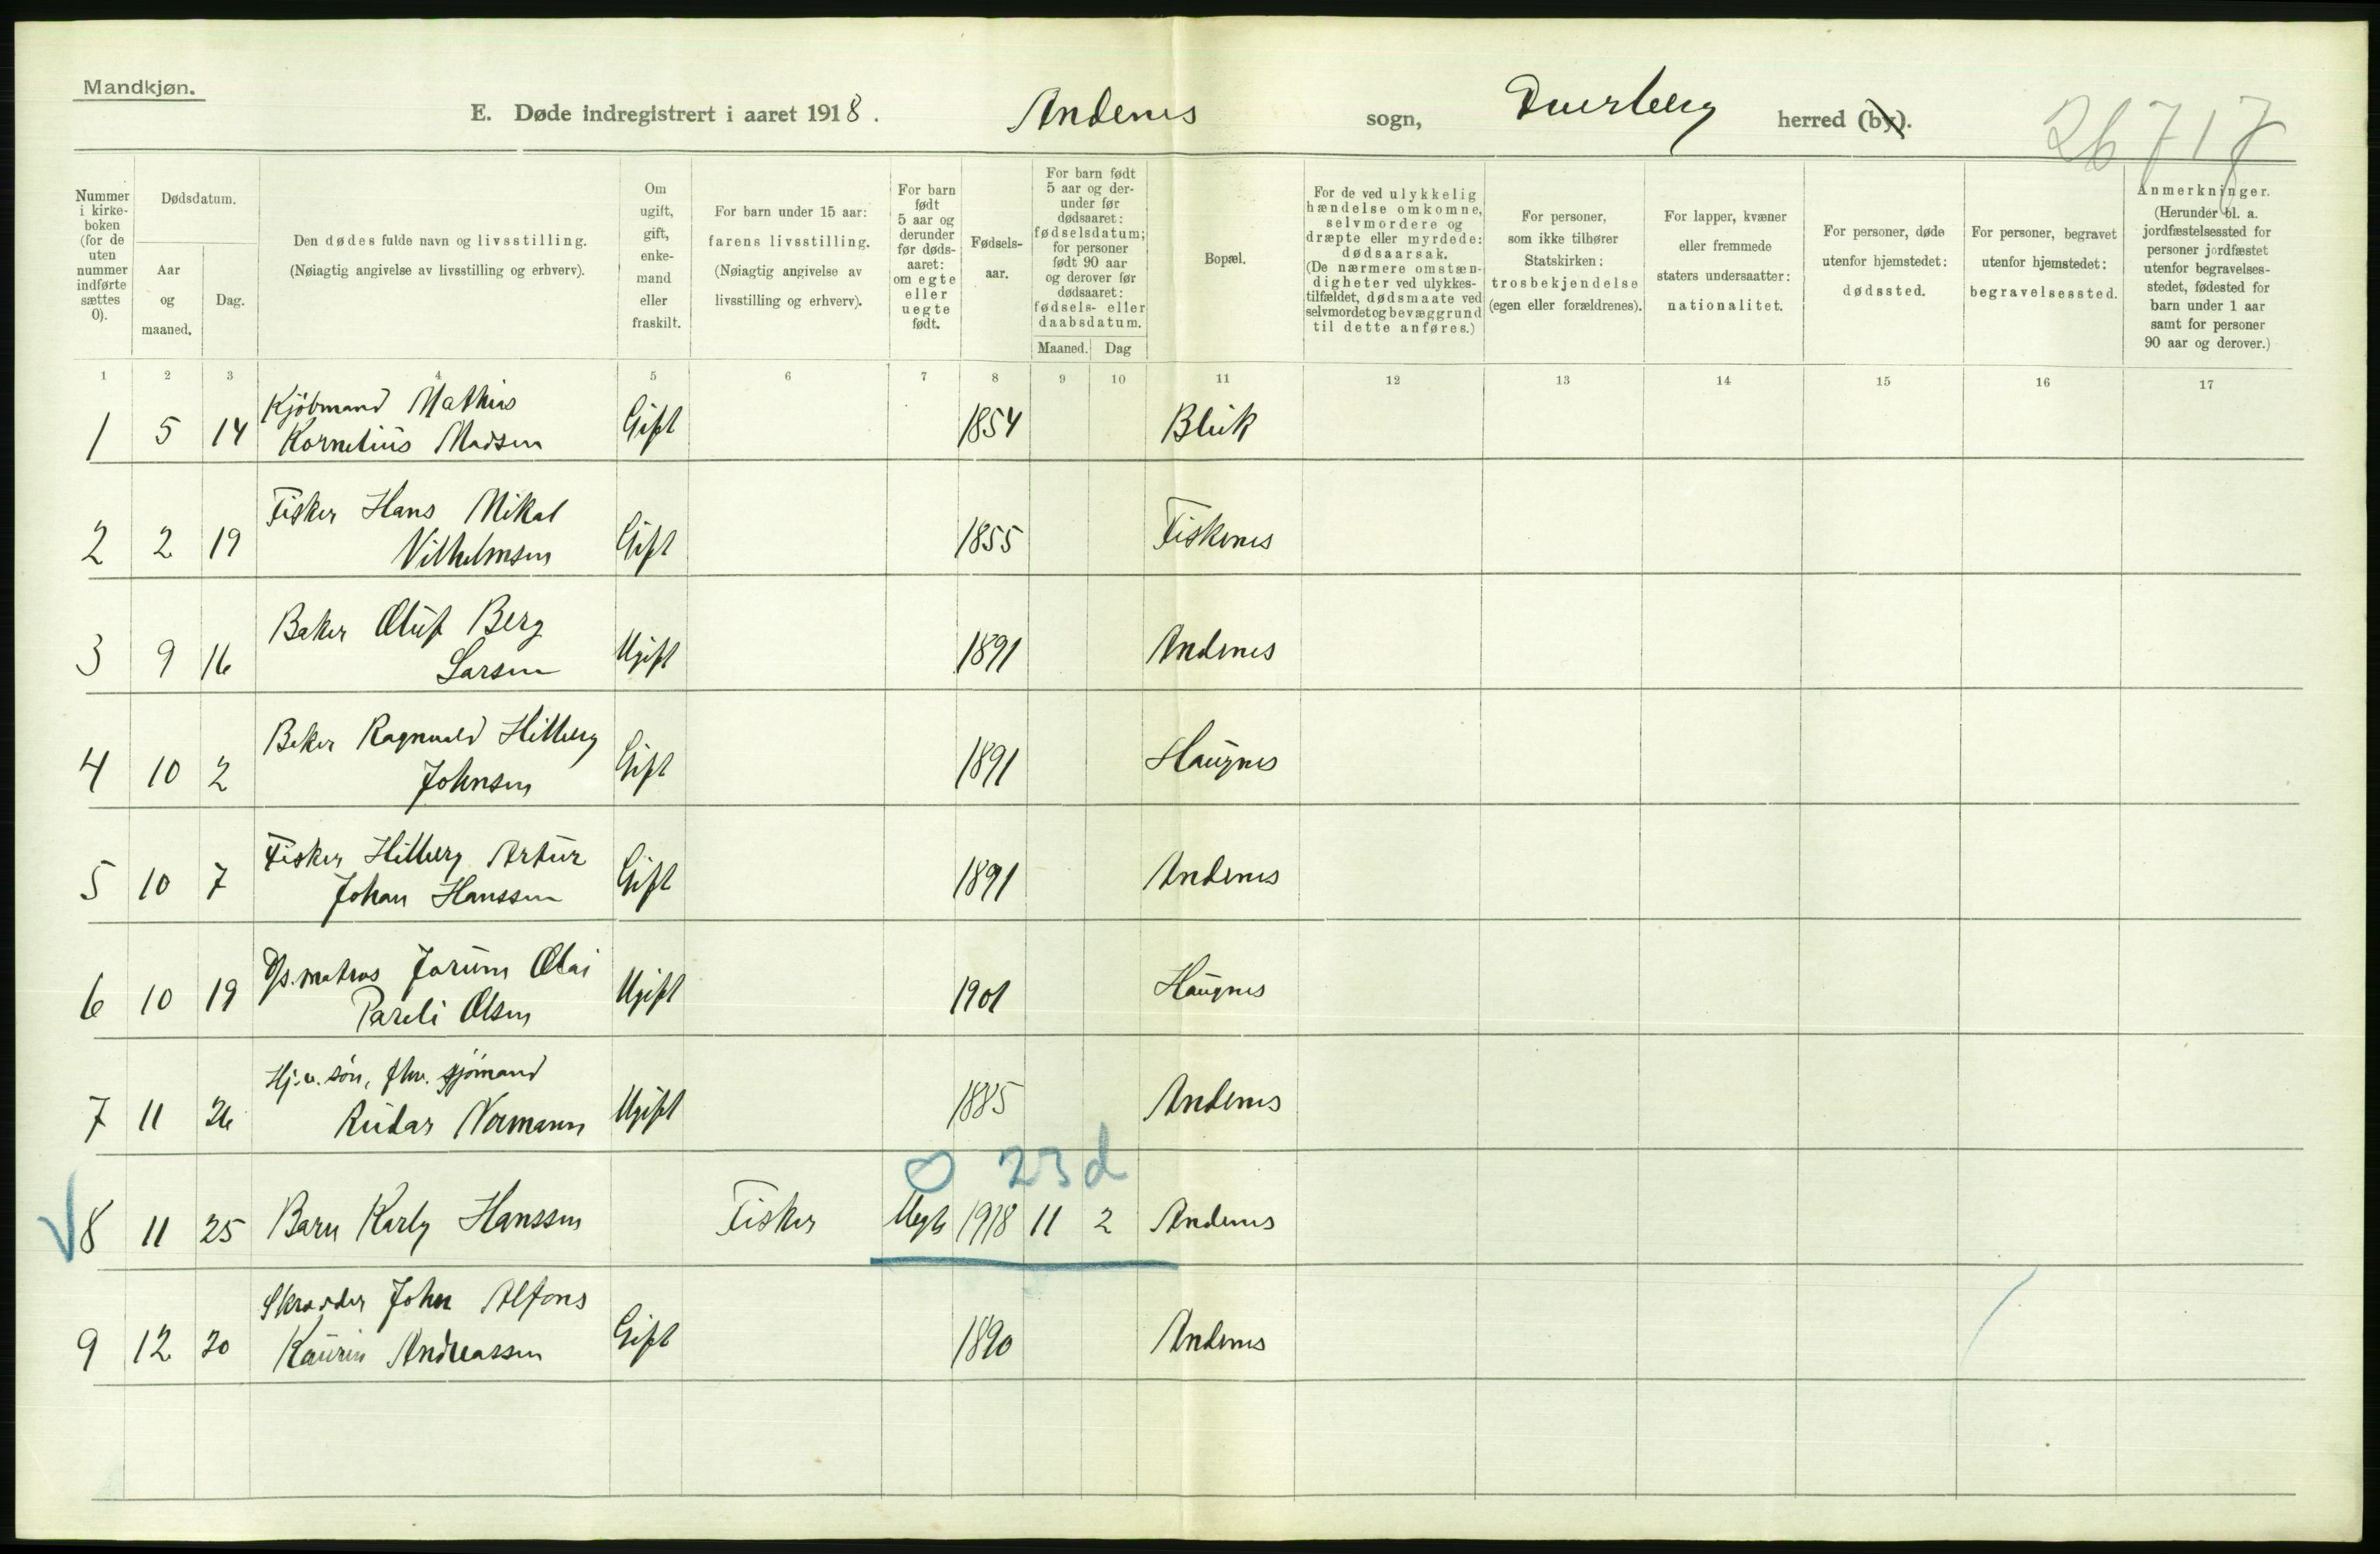 Mandkjøn.
E. Døde indregistrert i aaret 1918. Andenes sogn, Dverberg herred (by).
26717
Nummer i kirke-boken (for de uten nummer indførte sættes 0).
Dødsdatum.
Aar og maaned.
Dag.
Den dødes fulde navn og livsstilling.
(Nøiagtig angivelse av livsstilling og erhverv).
Om ugift, gift, enke-mand eller fraskilt.
For barn under 15 aar: farens livsstilling.
(Nøiagtig angivelse av livsstilling og erhverv).
For barn født 5 aar og derunder før døds-aaret: om egte eller uegte født.
Fødsels-aar.
For barn født 5 aar og der-under før dødsaaret: fødselsdatum; for personer født 90 aar og derover før dødsaaret: fødsels- eller daabsdatum.
Maaned. Dag
Bopæl.
For de ved ulykkelig hændelse omkomne, selvmordere og dræpte eller myrdede: dødsaarsak.
(De nærmere omstæn-digheter ved ulykkes-tilfældet, dødsmaate ved selvmordet og bevæggrund til dette anføres.)
For personer, som ikke tilhører Statskirken: trosbekjendelse (egen eller forældrenes).
For lapper, kvæner eller fremmede staters undersaatter: nationalitet.
For personer, døde utenfor hjemstedet: dødssted.
For personer, begravet utenfor hjemstedet: begravelsessted.
Anmerkninger.
(Herunder bl. a. jordfæstelsessted for personer jordfæstet utenfor begravelses-stedet, fødested for barn under 1 aar samt for personer 90 aar og derover.)
1 2 3 4 5 6 7 8 9 10 11 12 13 14 15 16 17
Kjøbmand Mathias
1 5 14 Kornelius Madsen Gift 1854 Bleik
Fisker Hans Mikal
2 2 19 Vilhelmsen Gift 1855 Fiskenes
Baker Oluf Berg
3 9 16 Larsen Ugift 1891 Andenes
Baker Ragnvald Hilberg
4 10 2 Johnsen Gift 1891 Haugnes
Fisker Hilberg Artur
5 10 7 Johan Hanssen Gift 1891 Andenes
matros Jorum Olai
6 10 19 Pareli Olsen Ugift 1901 Haugnes
Hj.v. søn, fhv. sjømand
7 11 26 Reidar Normann Ugift 1885 Andenes
0 23 d
8 11 25 Barn Karly Hanssen Fisker Uegte 1918 11 2 Andenes
Skrædder John Alfons
9 12 20 Kaurin Andreassen Gift 1890 Andenes